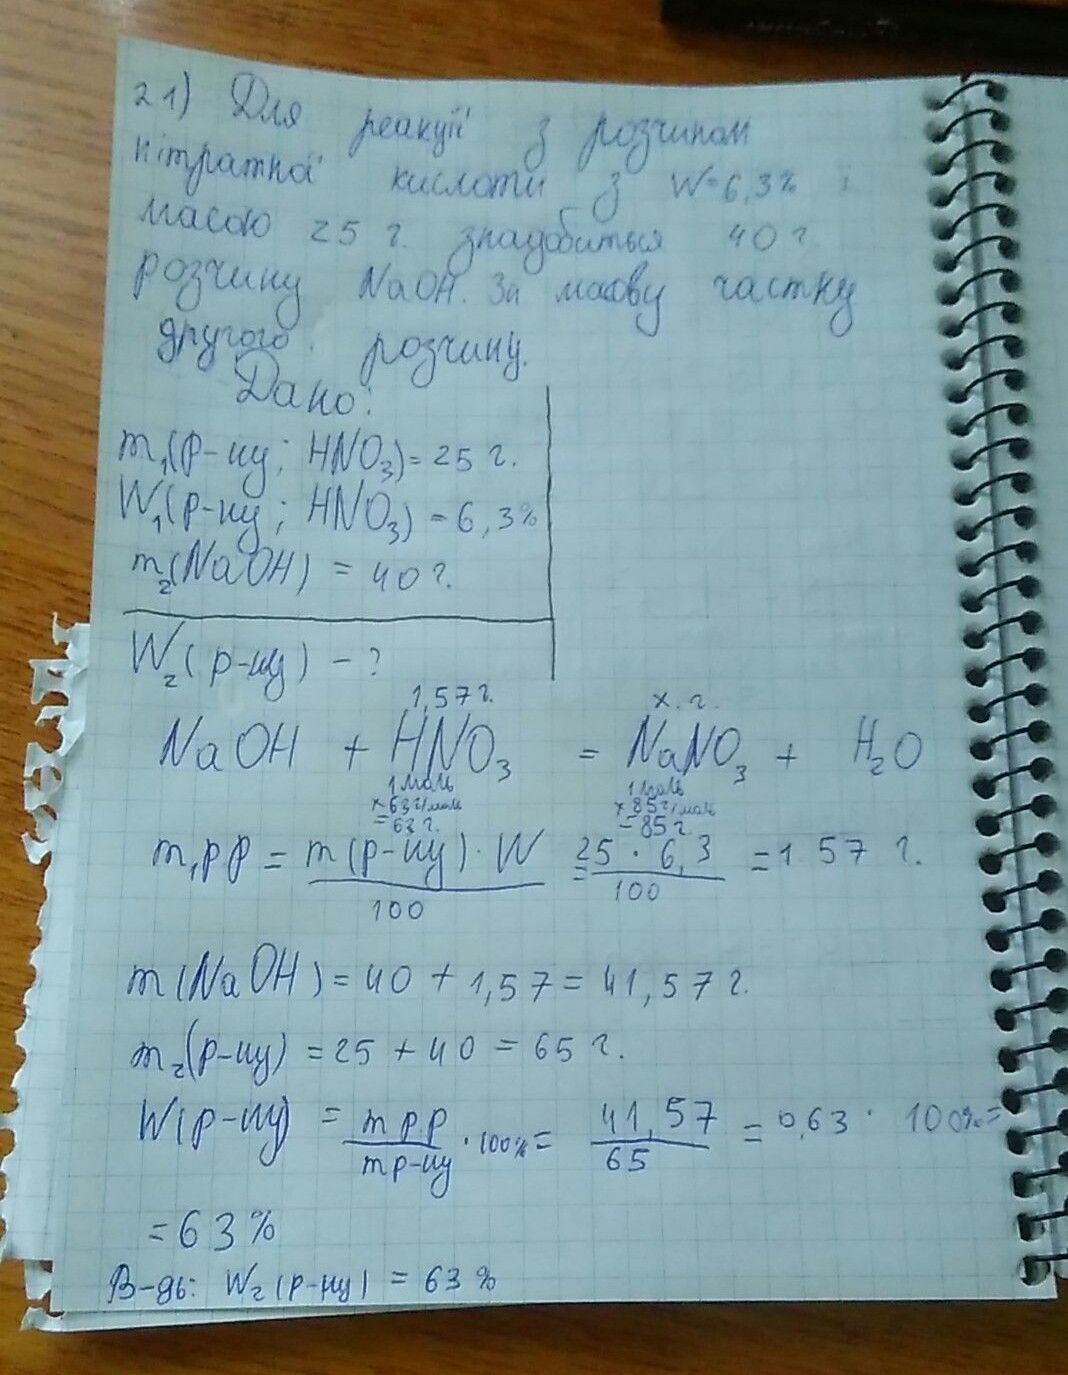 21) Для реакції з розчином
нітратної кислоти з W=6,3% і
масою 25 г. знадобиться 40 г.
розчину NaOH. Зн масову частку
другого розчину.
Дано:
m₁(р-ну; HNO₃)=25 г.
W₁(р-ну; HNO₃) = 6,3%
m₂(NaOH) = 40 г.
W₂(р-ну) - ?
1,57 г. x. г.
NaOH + HNO₃ = NaNO₃ + H₂O
1 моль 1 моль
×63 г/моль ×85 г/моль
=63 г. =85 г.
m₁рр = m(р-ну)·W/100 = 25·6,3/100 = 1.57 г.
m(NaOH)=40+1,57=41,57 г.
m₂(р-ну)=25+40=65 г.
W(р-ну) = mр.р/mр-ну ·100%= 41,57/65 =0,63·100%=
=63%
В-дь: W₂(р-ну) = 63%